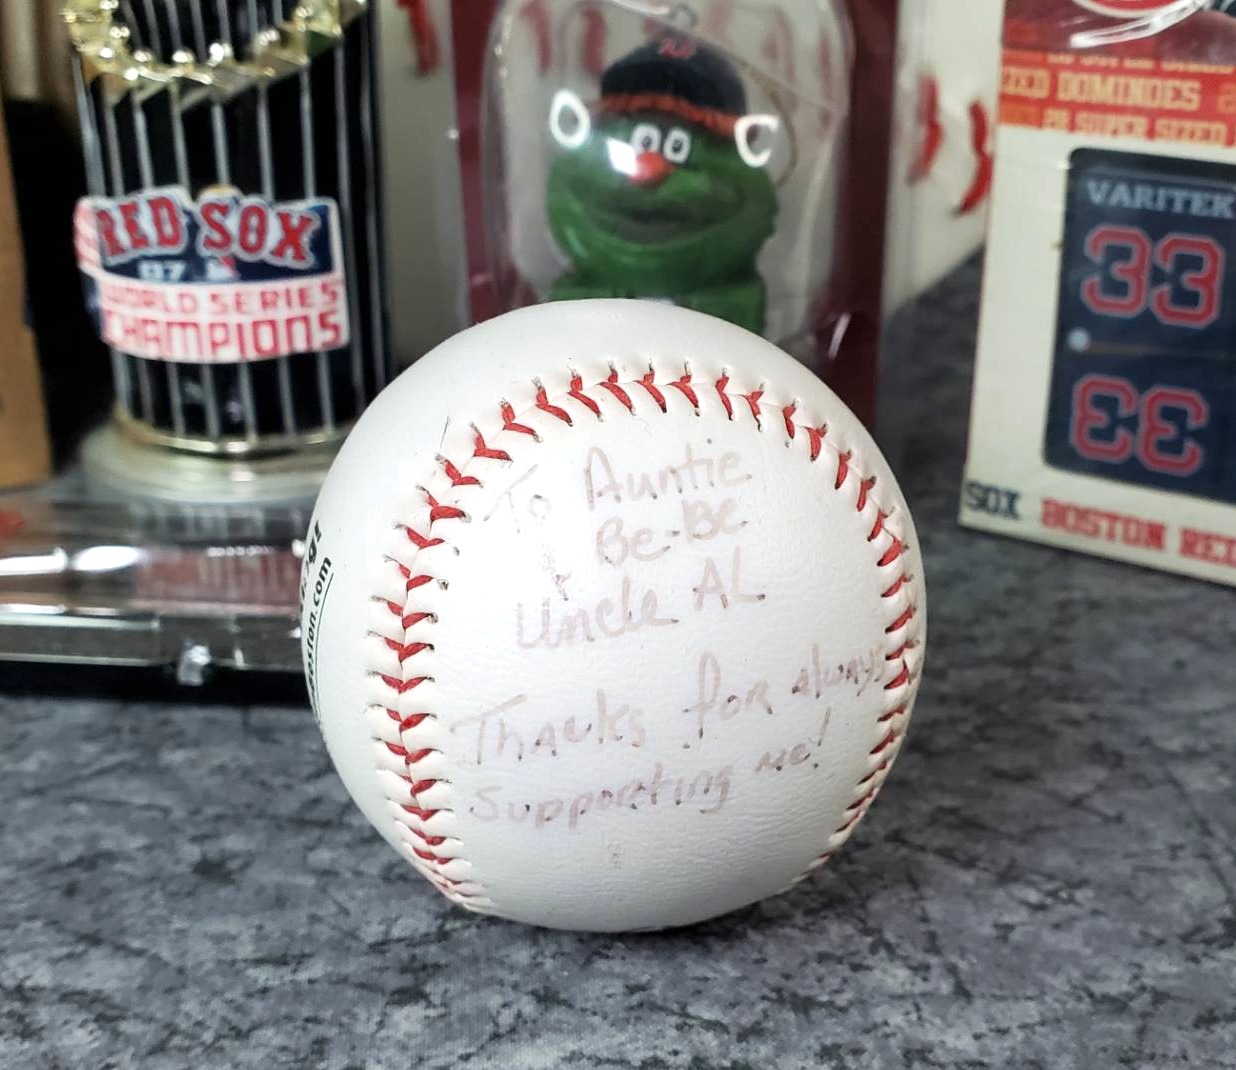 RED SOX
07
WORLD SERIES
CHAMPIONS
SIZED DOMINOES
28 SUPER SIZED
VARITEK
33
33
SOX BOSTON RED
To Auntie
Be-Be
+
Uncle AL
Thanks for always
supporting me!
boston.com